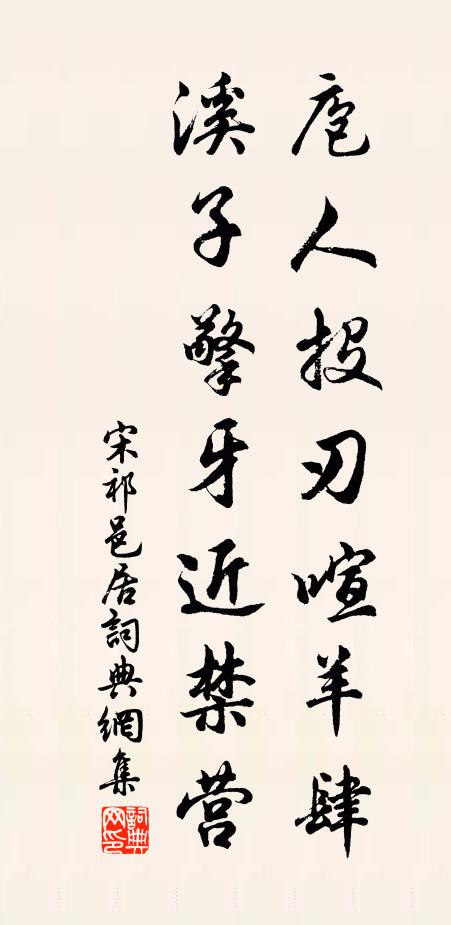 庖人投刃喧羊肆
溪子擎牙近禁营
宋祁邑居詞典網集
詞典网印